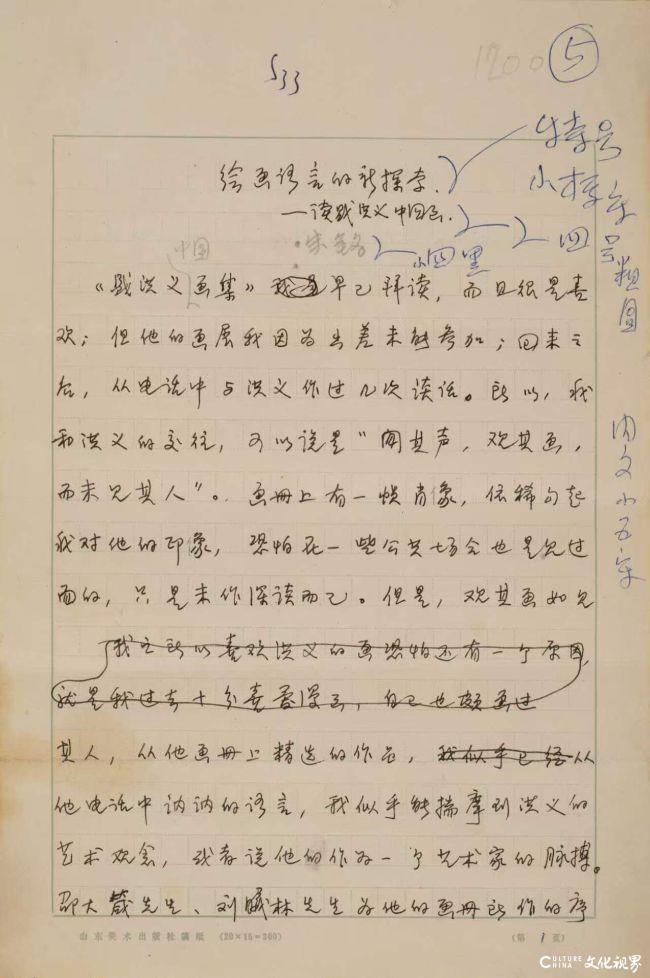 533
1200 ⑤
特号
小标宋
四号粗圆
绘画语言的新探索
—读战洪义中国画
宋
小四黑
内文小五宋
中国
《战洪义画集》我是早已拜读，而且很是喜
欢；但他的画展我因为出差未能参加；回来之
后，从电话中与洪义作过几次谈话。所以，我
和洪义的交往，可以说是“闻其声，观其画，
而未见其人”。画册上有一帧肖像，依稀勾起
我对他的印象，恐怕在一些公共场合也是见过
面的，只是未作深谈而已。但是，观其画如见
我之所以喜欢洪义的画恐怕还有一个原因，
就是我过去十分喜爱漫画，自己也颇画过
其人，从他画册上精选的作品，我似乎已经从
他电话中讷讷的语言，我似乎能揣摩到洪义的
艺术观念，或者说他的作为一个艺术家的脉搏。
邵大箴先生、刘曦林先生为他的画册所作的序
山东美术出版社稿纸 (20×15=300) (第 1 页)
CULTURE CHINA 文化视界